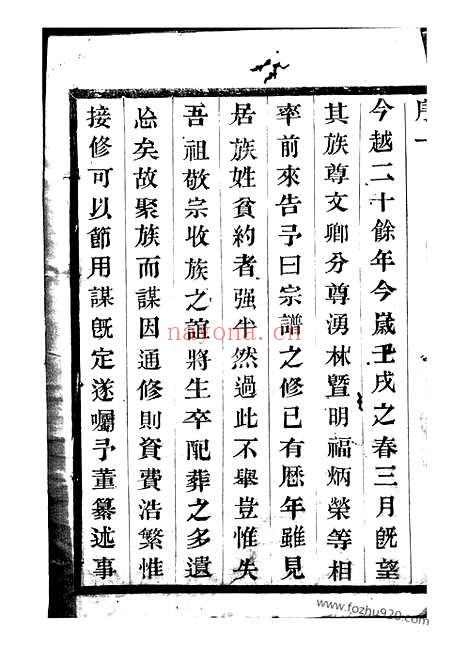 序一
今越二十餘年今嵗壬戌之春三月旣望
其族尊文卿分尊湧林曁明福炳榮等相
率前來告予曰宗譜之修已有歷年雖見
居族姓貧約者强半然過此不舉豈惟失
吾祖敬宗收族之誼將生卒配葬之多遺
忩矣故聚族而謀因通修則資費浩繁惟
接修可以節用謀旣定遂囑予董纂述事
nayona.cn
www.fozhu920.com